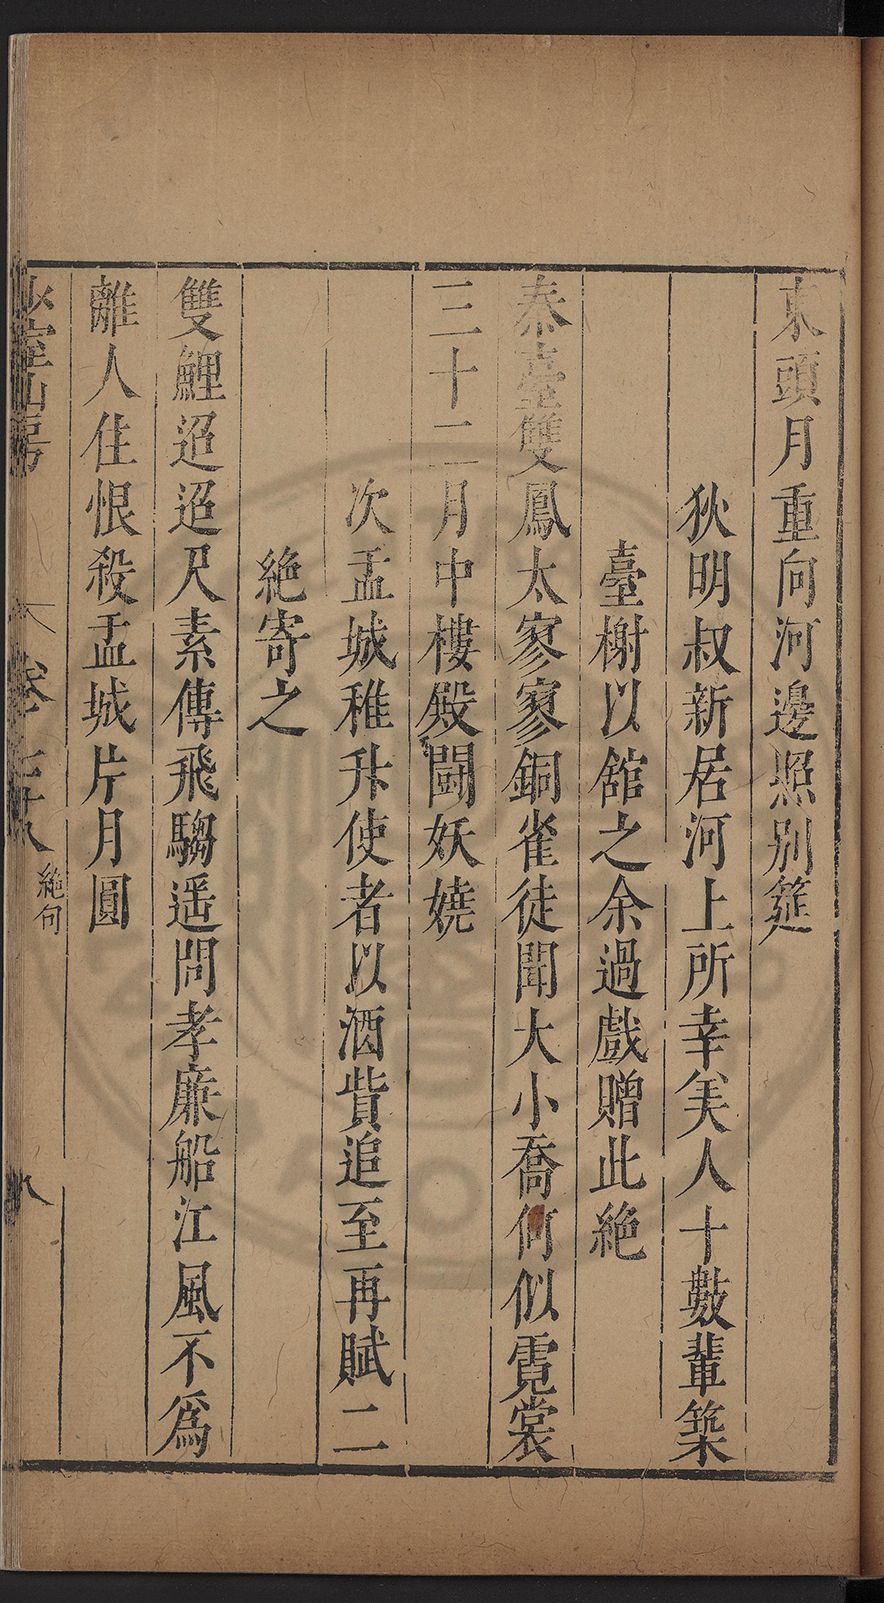 東頭月重向河邊照別筵
狄明叔新居河上所幸美人十數輩築
臺榭以舘之余過戲贈此絶
秦臺雙鳳太寥寥銅雀徒聞大小喬何似霓裳
三十二月中樓殿鬪妖嬈
次孟城稚升使者以酒貲追至再賦二
絶寄之
雙鯉迢迢尺素傳飛騶遥問孝廉船江風不爲
離人住恨殺孟城片月圓
室山房 卷 十八 絶句 八